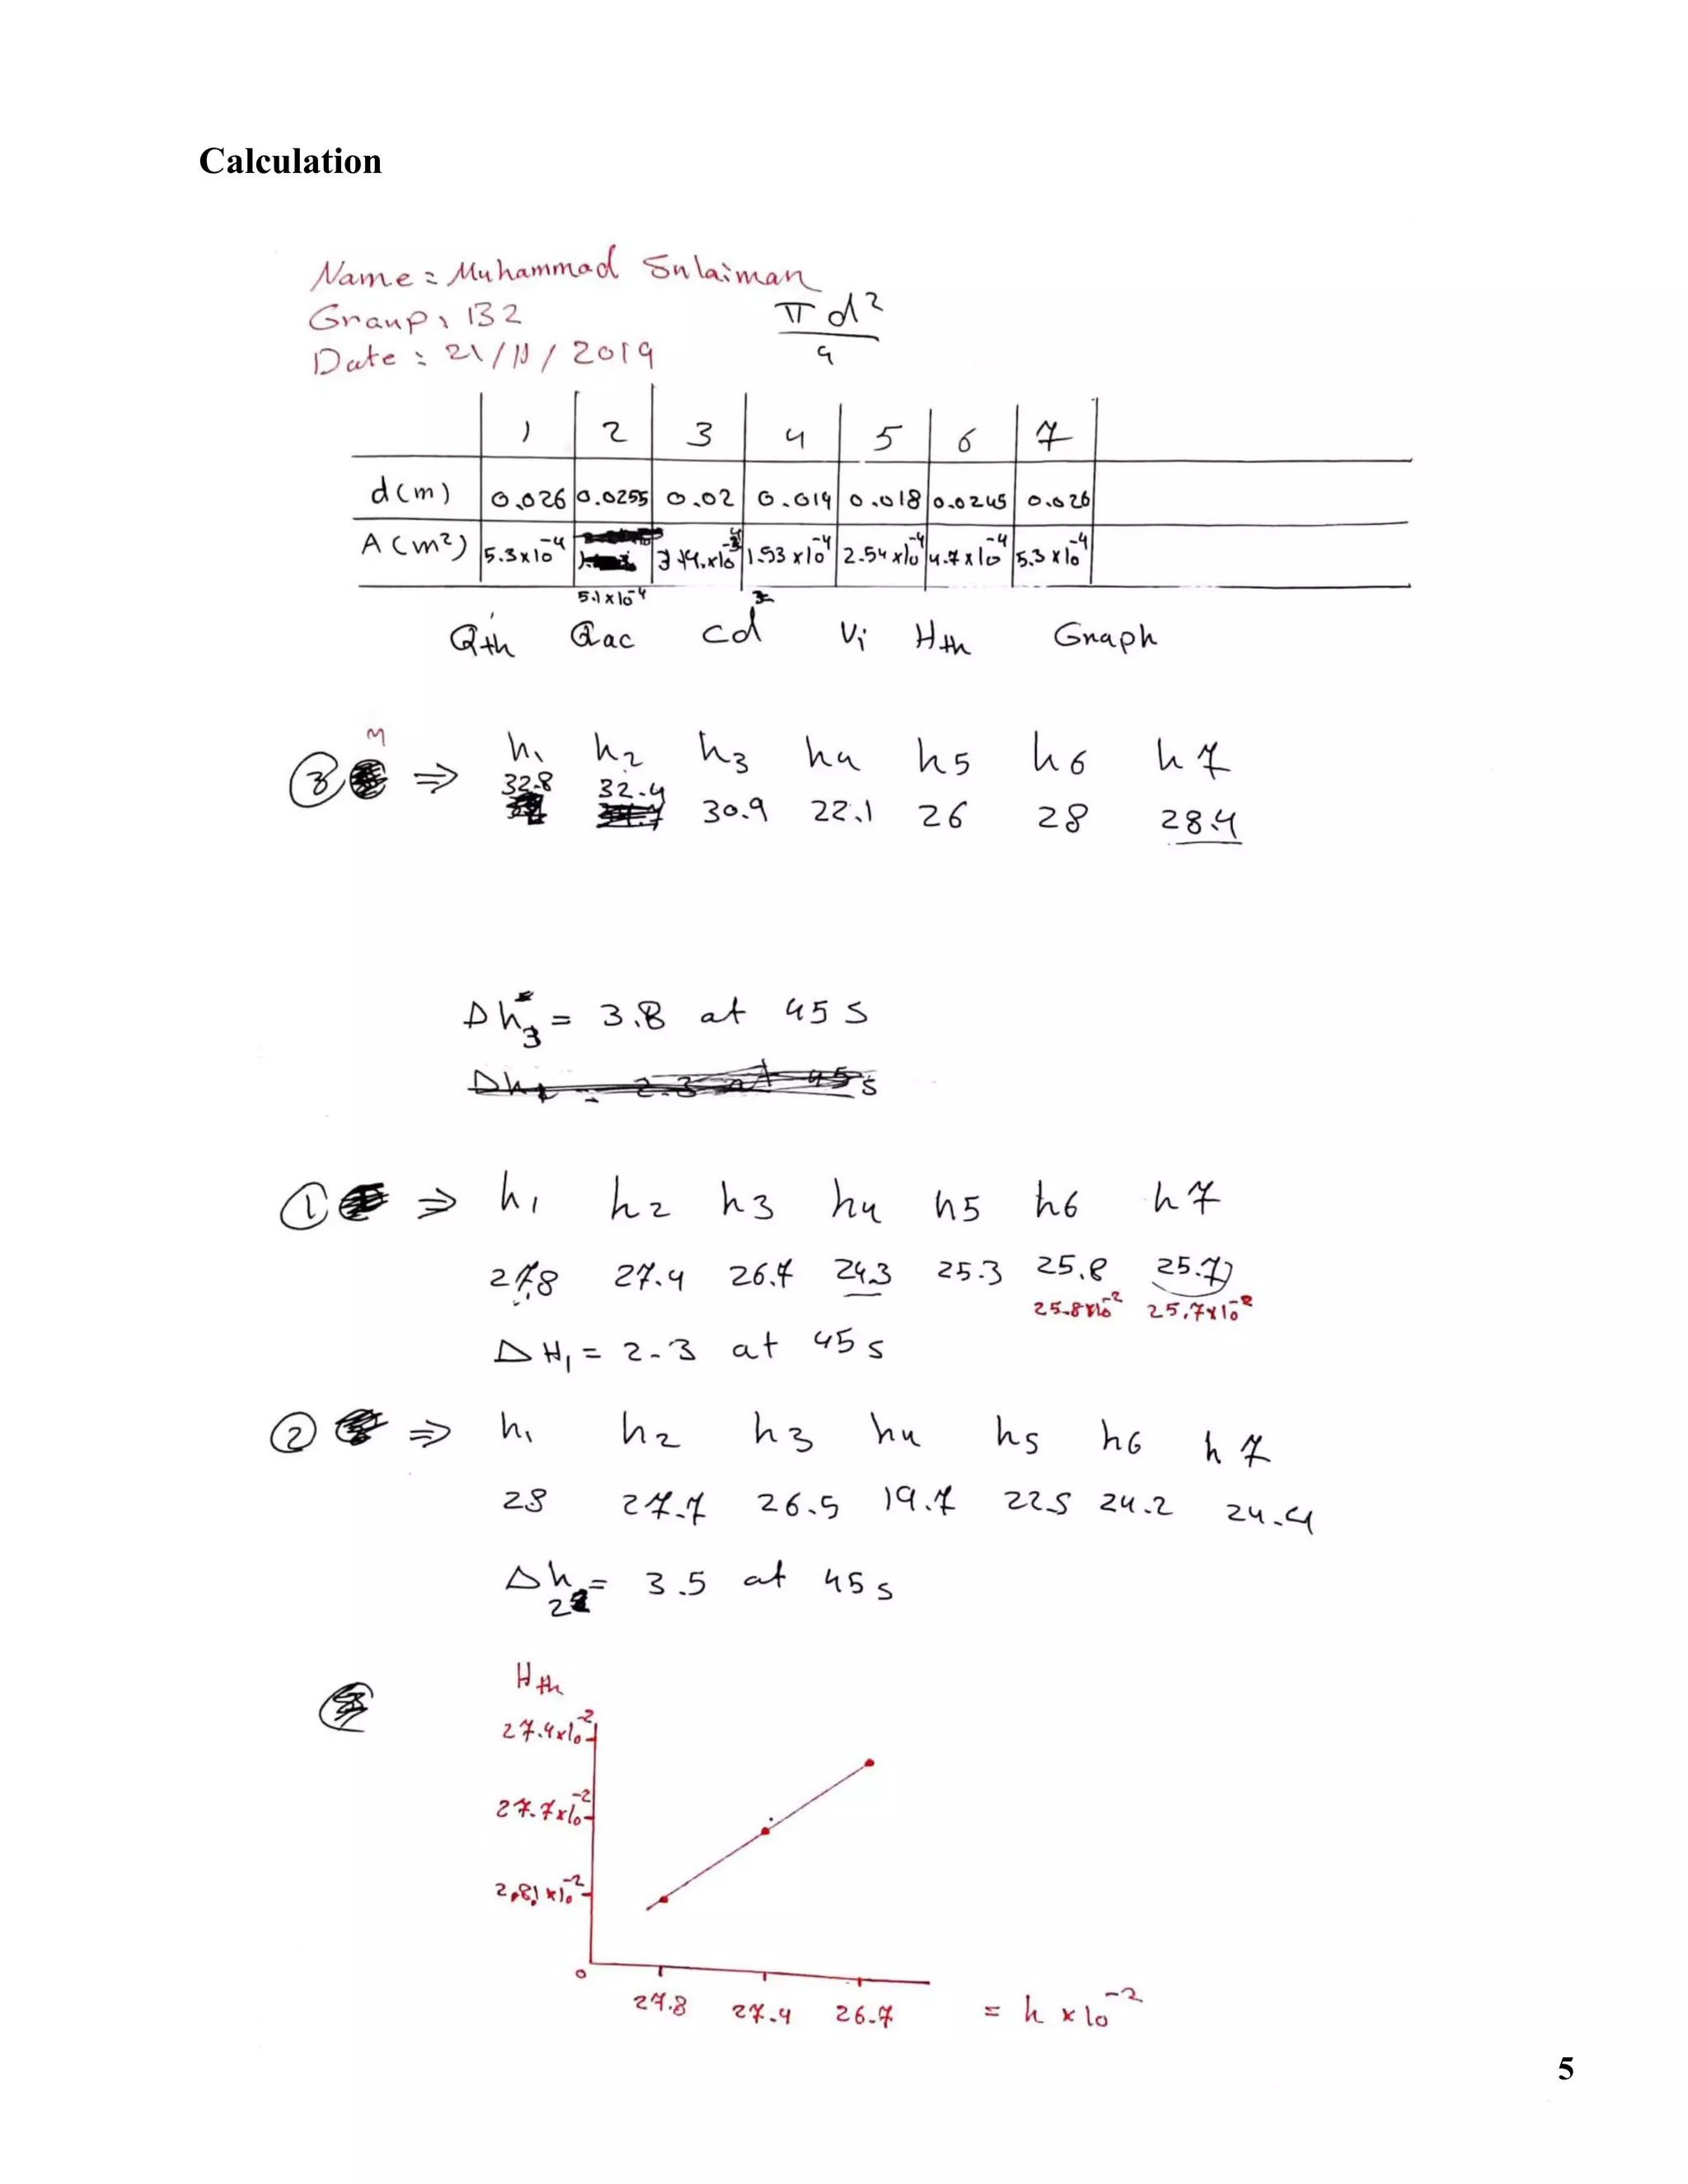 Calculation
Name = Muhammad Sulaiman
Group: B2
π d²
4
Date: 21/11/2019
1 2 3 4 5 6 7
d(m) 0.026 0.0255 0.02 0.014 0.018 0.0245 0.026
A(m²) 5.3x10⁻⁴ 3.14x10⁻⁴ 1.53x10⁻⁴ 2.54x10⁻⁴ 4.7x10⁻⁴ 5.3x10⁻⁴
5.1x10⁻⁴
Qth Qac cd Vi Hth Graph
M
③ ⇒ h₁ h₂ h₃ h4 h5 h6 h7
32.8 32.4 30.9 22.1 26 28 28.4
Δh₃ = 3.8 at 45 s
Δh = 2.3 at 45 s
① ⇒ h₁ h₂ h3 h4 h5 h6 h7
27.8 27.4 26.7 24.3 25.3 25.8 25.7
25.8x10⁻² 25.7x10⁻²
ΔH₁ = 2.3 at 45 s
② ⇒ h₁ h₂ h3 h4 h5 h6 h7
28 27.7 26.5 19.7 22.5 24.2 24.4
Δh₂ = 3.5 at 45 s
Hth
27.4x10⁻²
27.7x10⁻²
28.1x10⁻²
0
27.8 27.4 26.7 = h x 10⁻²
5